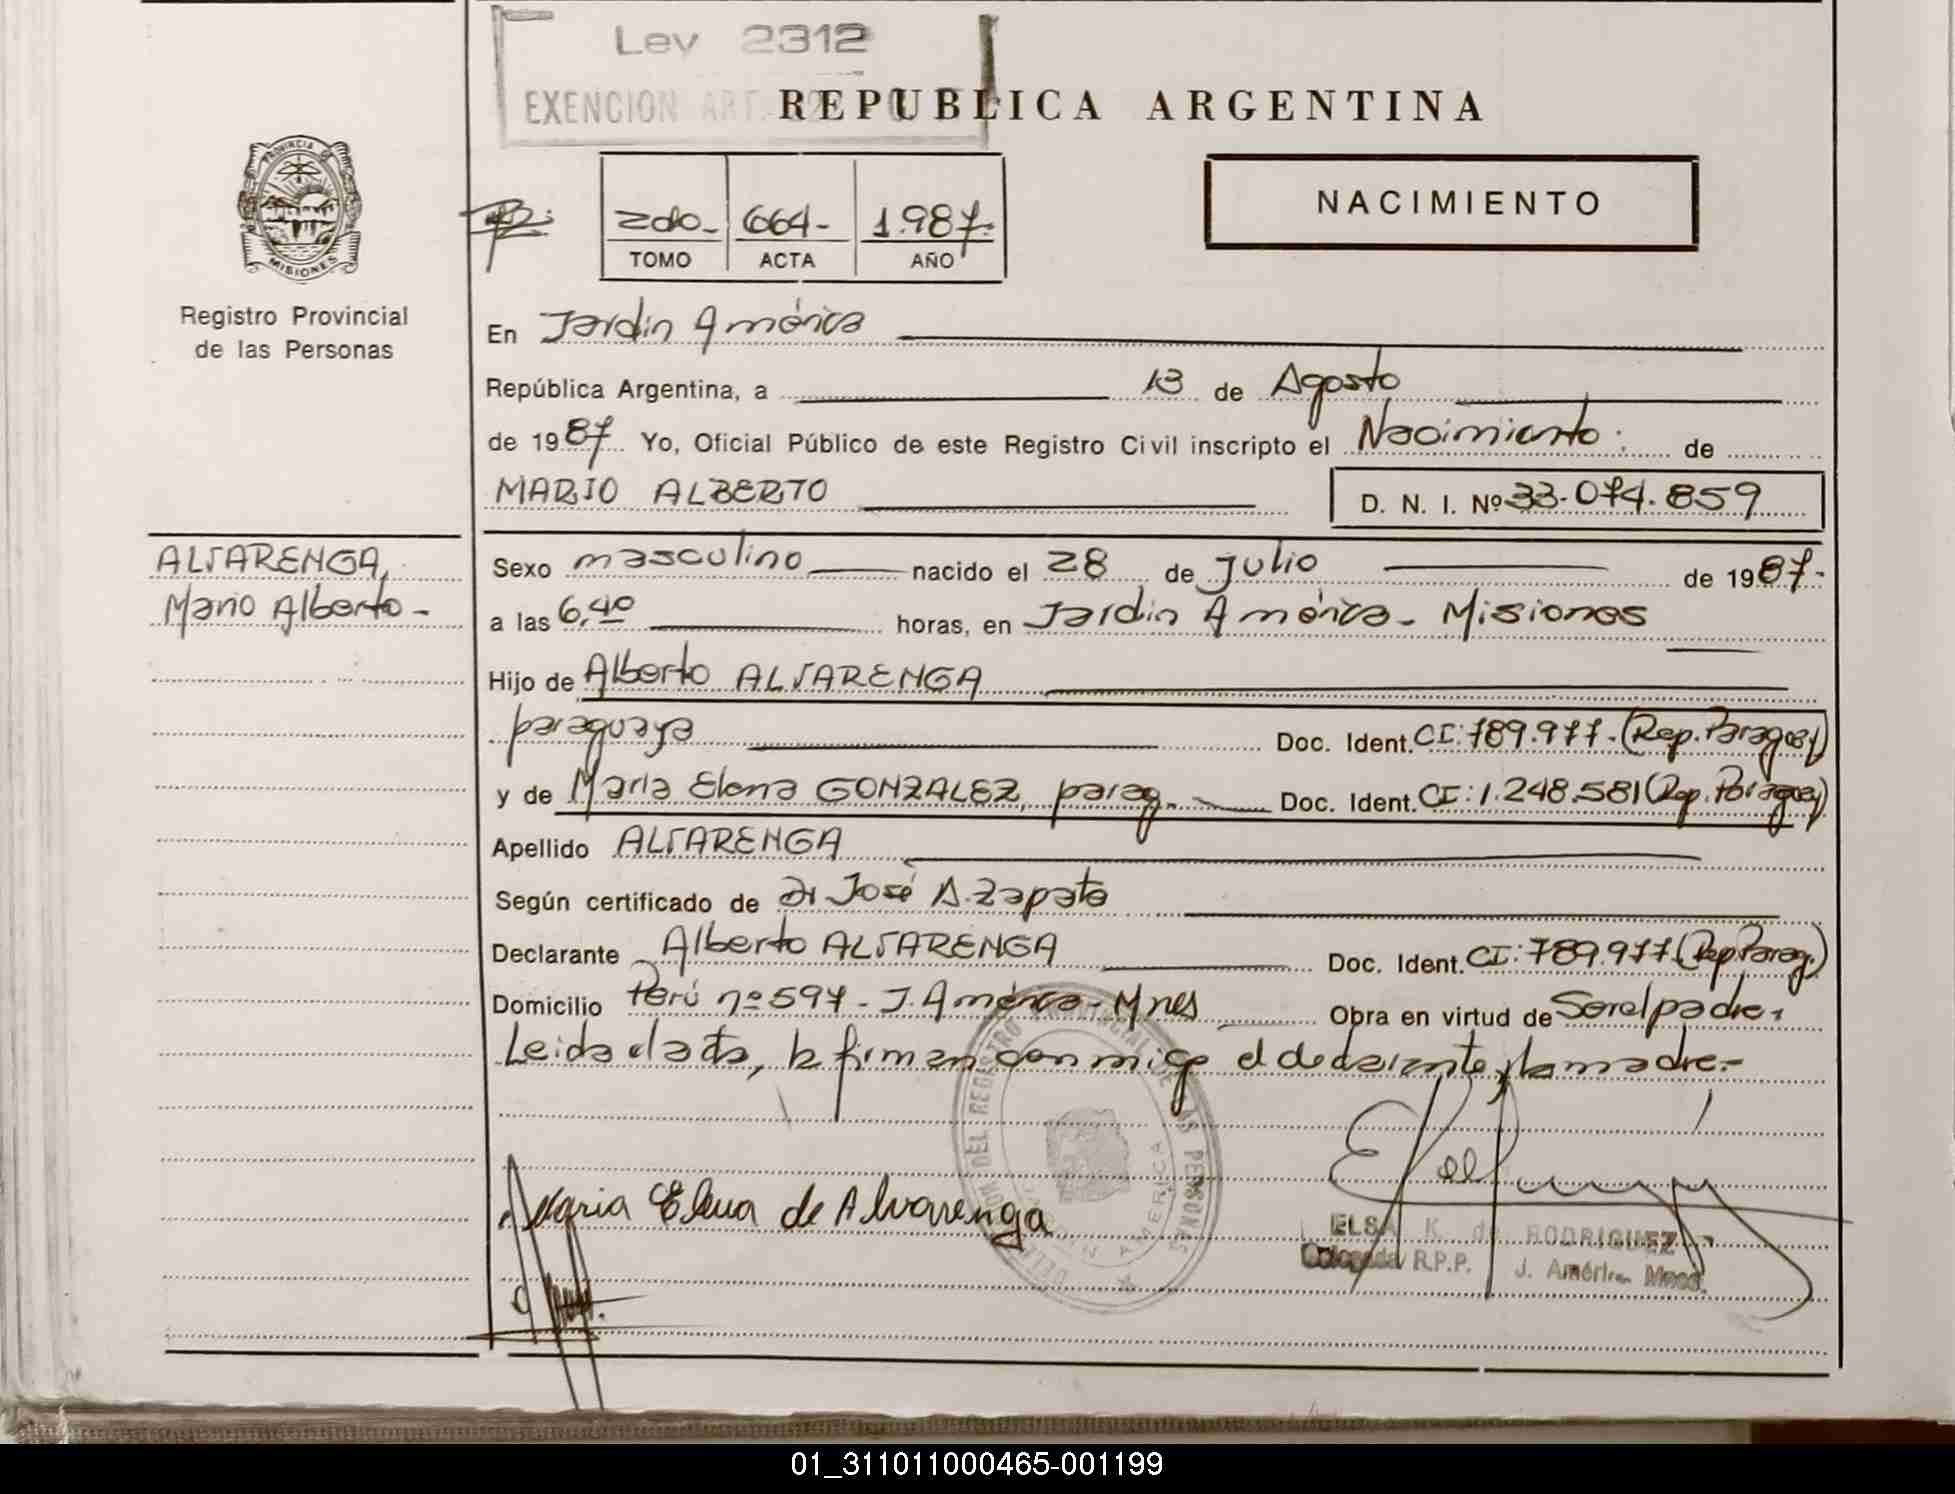 Ley 2312
EXENCION ART.
REPUBLICA ARGENTINA
PROVINCIA DE
MISIONES
Registro Provincial
de las Personas
2do- 664- 1.987-
TOMO ACTA AÑO
NACIMIENTO
En Jardín América
República Argentina, a 13 de Agosto
de 1987 Yo, Oficial Público de este Registro Civil inscripto el Nacimiento: de
MARIO ALBERTO D. N. I. Nº 33.074.859
ALVARENGA,
Mario Alberto-
Sexo masculino nacido el 28 de julio de 1987-
a las 6,40 horas, en Jardín América- Misiones
Hijo de Alberto ALVARENGA
paraguaya Doc. Ident. CI: 789.977-(Rep. Paraguay)
y de María Elena GONZALEZ, parag. Doc. Ident. CI: 1.248.581(Rep. Paraguay)
Apellido ALVARENGA
Según certificado de Dr José A. Zapata
Declarante Alberto ALVARENGA Doc. Ident. CI: 789.977(Rep Parag.)
Domicilio Perú nº 597- J. América- Mnes Obra en virtud de Ser el padre.
Leida el acta, la firman conmigo el declarante y la madre.-
DEL REGISTRO PROVINCIAL DE LAS PERSONAS
JARDIN AMERICA
Maria Elena de Alvarenga
ELSA K. de RODRIGUEZ
Delegada R.P.P. J. América Mnes.
01_311011000465-001199